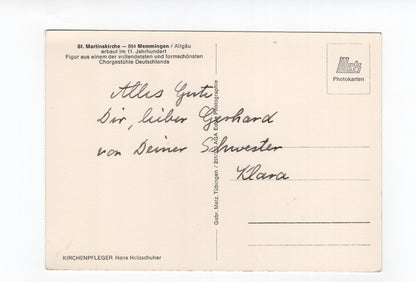 St. Martinskirche — 894 Memmingen / Allgäu
erbaut im 11. Jahrhundert
Figur aus einem der vollendetsten und formschönsten
Chorgestühle Deutschlands
Metz
Photokarten
Alles Gute
Dir, lieber Gerhard
von Deiner Schwester
Klara
Gebr. Metz, Tübingen
KIRCHENPFLEGER Hans Holzschuher